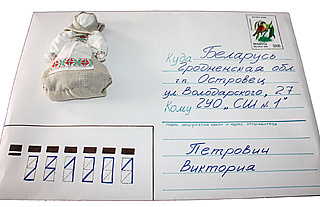 Куда Беларусь
Гродненская обл
гп Островец
ул Володарского, 27
Кому ГУО „СШ №1"
Петрович
Виктория
231201